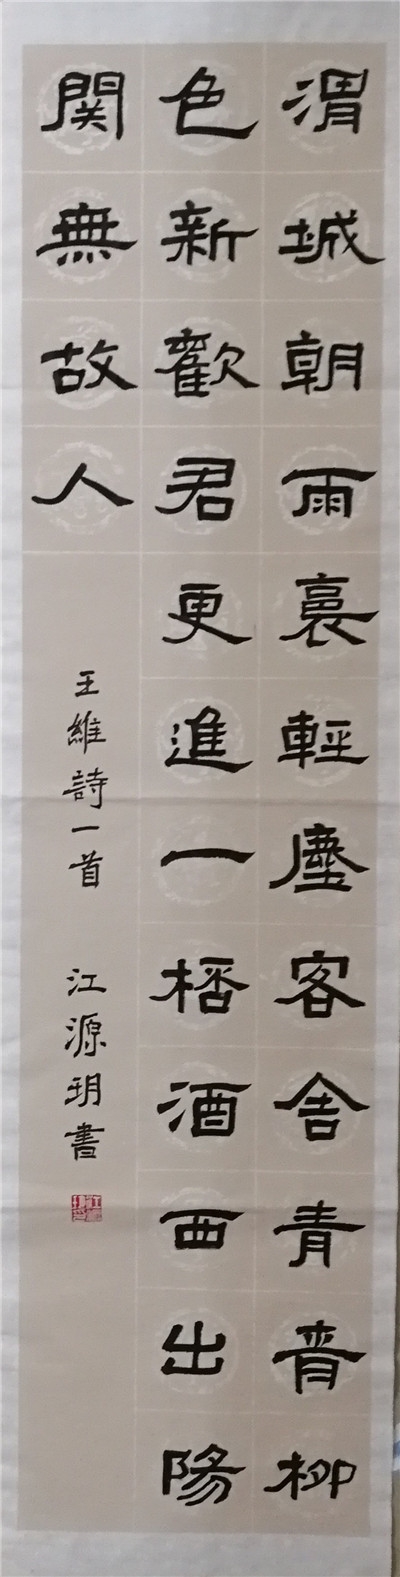 渭城朝雨裛輕塵客舍青青柳
色新歡君更進一桮酒西出陽
関無故人
王維詩一首 江源玥書